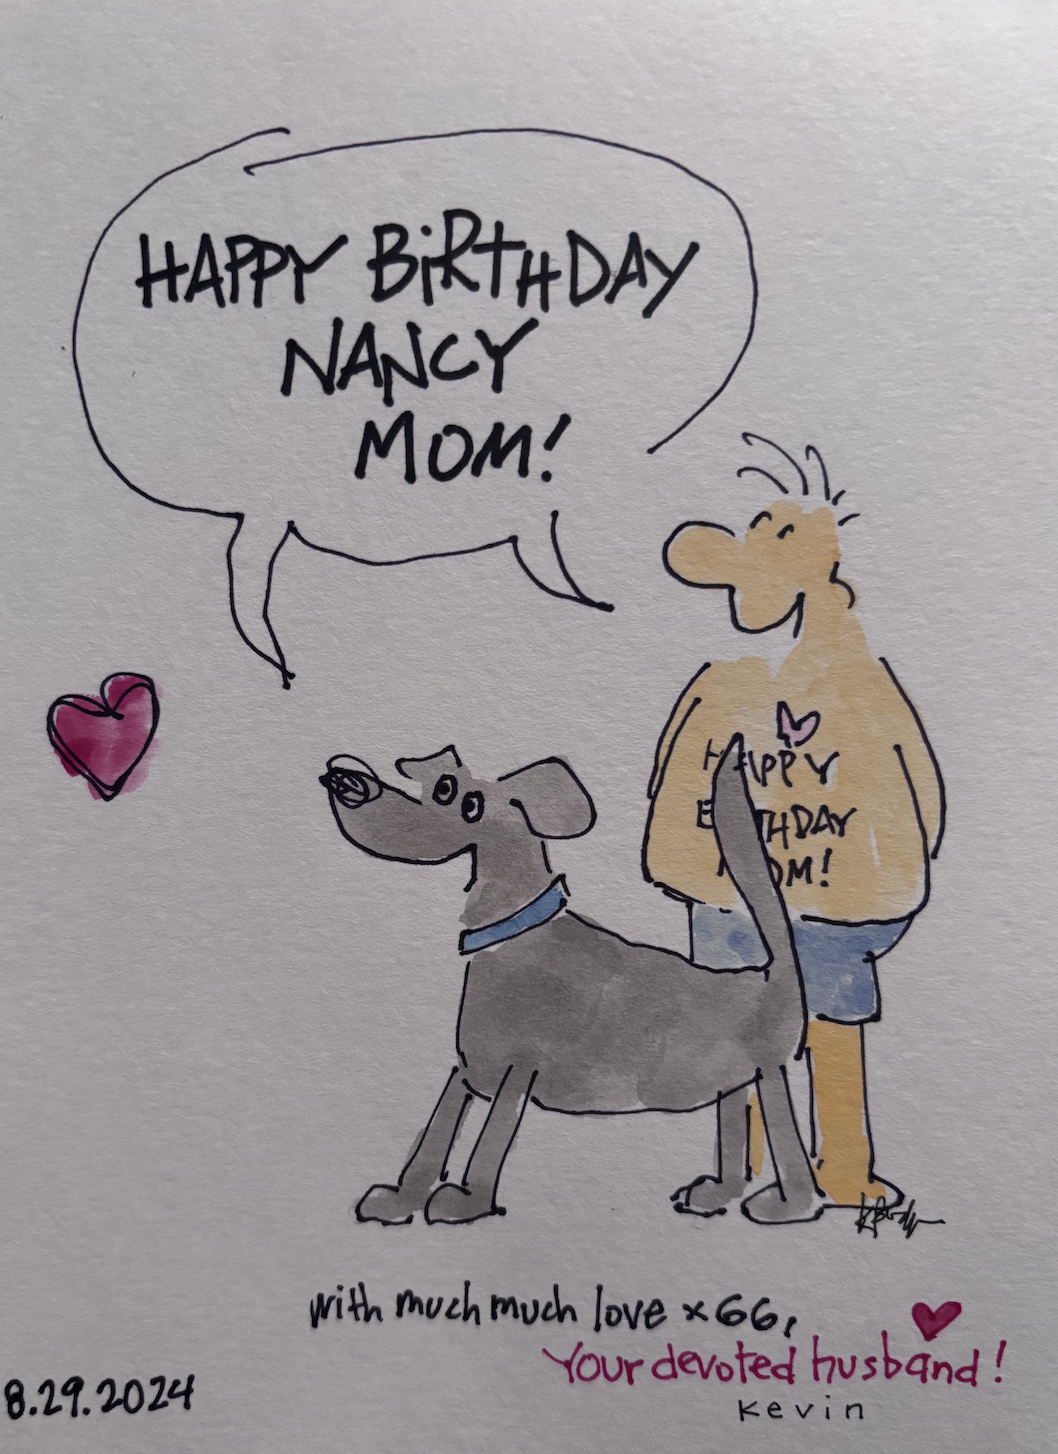 HAPPY BiRTHDAY
NANCY
MOM!
HAPPY
THDAY
OM!
with much much love x66,
Your devoted husband!
Kevin
8.29.2024